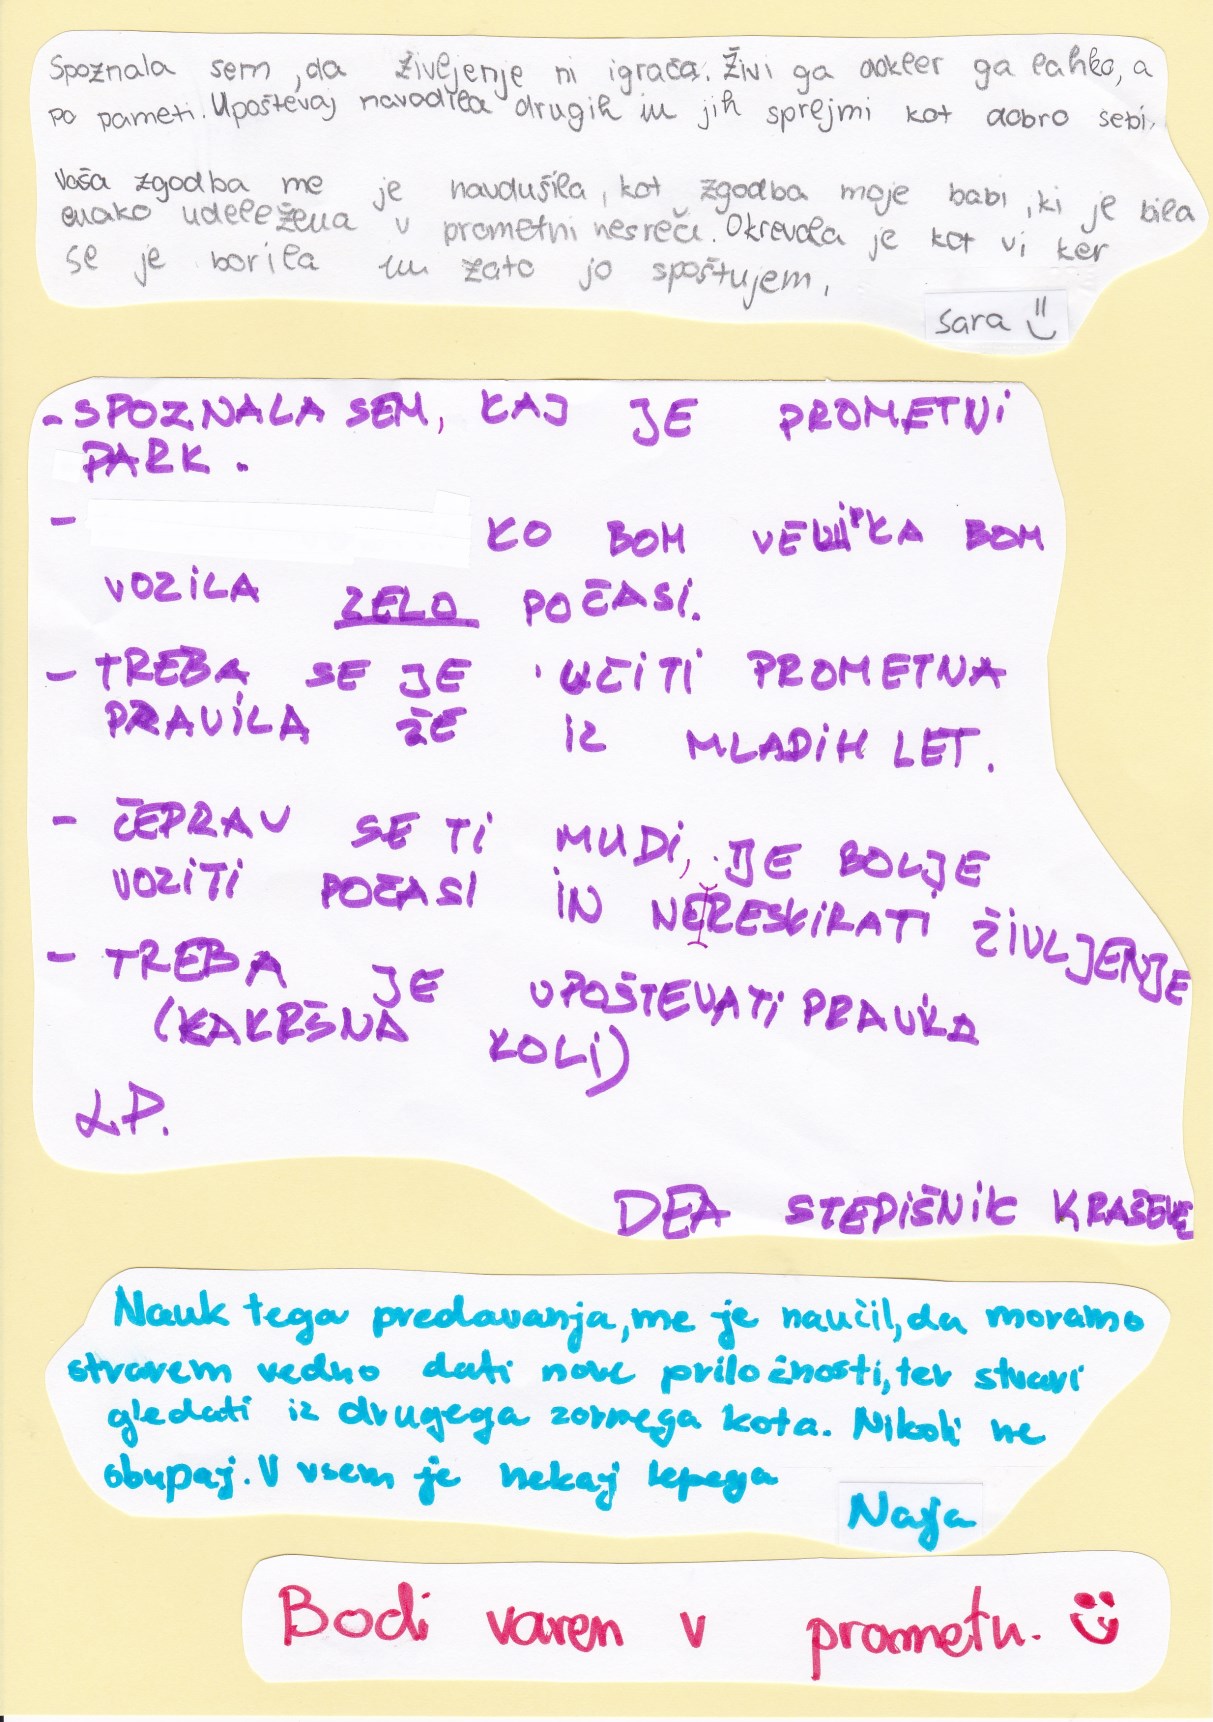 Spoznala sem, da življenje ni igrača. Živi ga dokler ga lahko, a
po pameti. Upoštevaj navodila drugih in jih sprejmi kot dobro sebi.
Vaša zgodba me je navdušila, kot zgodba moje babi, ki je bila
enako udeležena v prometni nesreči. Okrevala je kot vi ker
se je borila in zato jo spoštujem.
Sara
- SPOZNALA SEM, KAJ JE PROMETNI
PARK.
- KO BOM VELIKA BOM
VOZILA ZELO POČASI.
- TREBA SE JE UČITI PROMETNA
PRAVILA ŽE IZ MLADIH LET.
- ČEPRAV SE TI MUDI, JE BOLJE
VOZITI POČASI IN NE RESKIRATI ŽIVLJENJE
- TREBA JE UPOŠTEVATI PRAVILA
(KAKRŠNA KOLI)
L.P.
DEA STEPIŠNIK KRAŠEVEC
Nauk tega predavanja, me je naučil, da moramo
stvarem vedno dati nove priložnosti, ter stvari
gledati iz drugega zornega kota. Nikoli ne
obupaj. V vsem je nekaj lepega
Naja
Bodi varen v prometu.